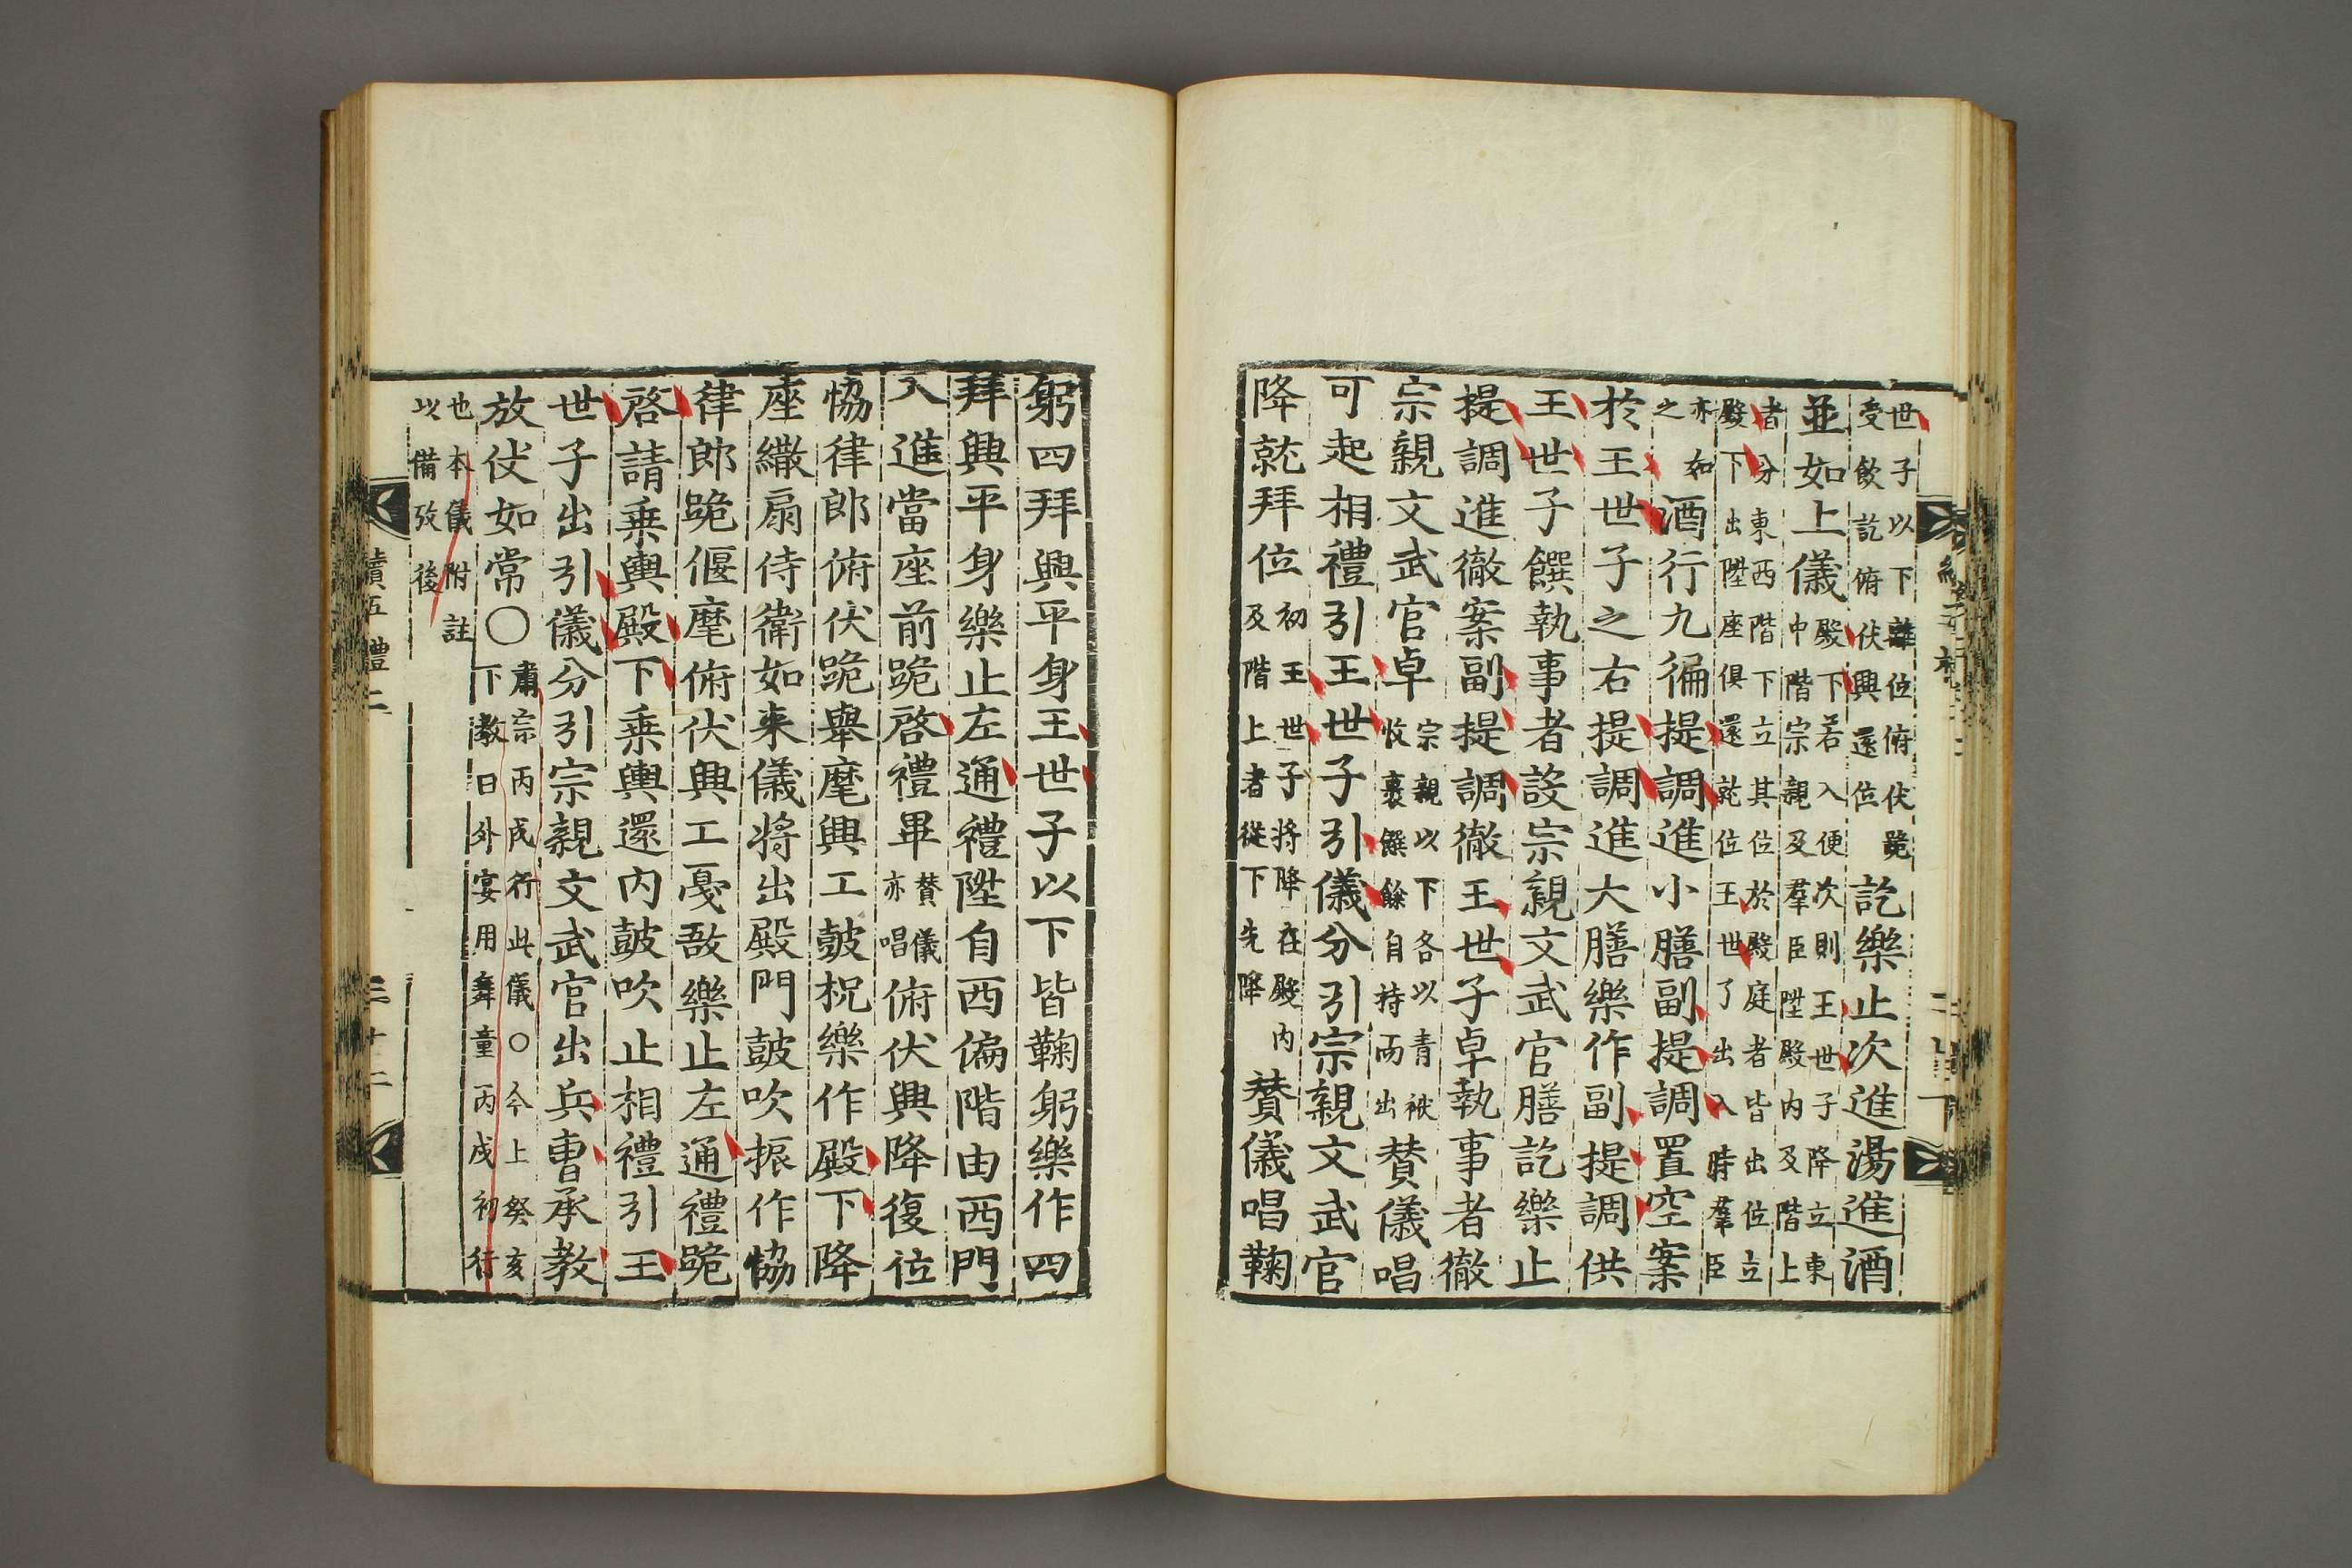 世子以下離位俯伏跪
受飮訖俯伏興還位
訖樂止次進湯進酒
並如上儀
殿下若入便次則王世子降立東
中階宗親及羣臣陞殿內及階上
者分東西階下立其位於殿庭者皆出位立
殿下出陞座俱還就位王世子出入時羣臣
亦如
之
酒行九徧提調進小膳副提調置空案
於王世子之右提調進大膳樂作副提調供
王世子饌執事者設宗親文武官膳訖樂止
提調進徹案副提調徹王世子卓執事者徹
宗親文武官卓
宗親以下各以靑袱
收裹饌餘自持而出
賛儀唱
可起相禮引王世子引儀分引宗親文武官
降就拜位
初王世子將降在殿內
及階上者從下先降
賛儀唱鞠
躬四拜興平身王世子以下皆鞠躬樂作四
拜興平身樂止左通禮陞自西偏階由西門
入進當座前跪啓禮畢
賛儀
亦唱
俯伏興降復位
恊律郎俯伏跪擧麾興工鼓柷樂作殿下降
座繖扇侍衛如來儀將出殿門鼓吹振作恊
律郎跪偃麾俯伏興工戞敔樂止左通禮跪
啓請乗輿殿下乗輿還內鼓吹止相禮引王
世子出引儀分引宗親文武官出兵曹承教
放仗如常〇
肅宗丙戌行此儀〇今上癸亥
下敎曰外宴用舞童丙戌初行
也本儀附註
以備攷後
續五禮二
三十二